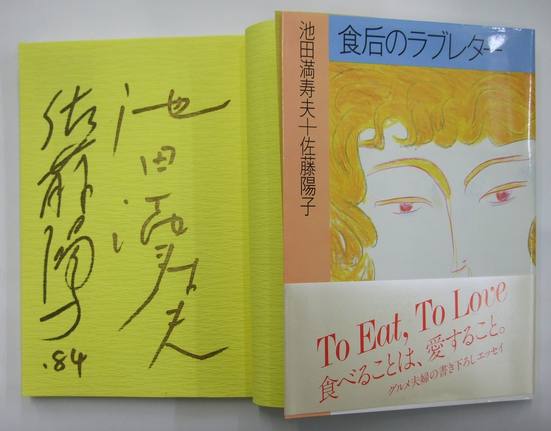 池田満寿夫
佐藤陽子
'84
食后のラブレター
池田満寿夫+佐藤陽子
To Eat, To Love
食べることは、愛すること。
グルメ夫婦の書き下ろしエッセイ